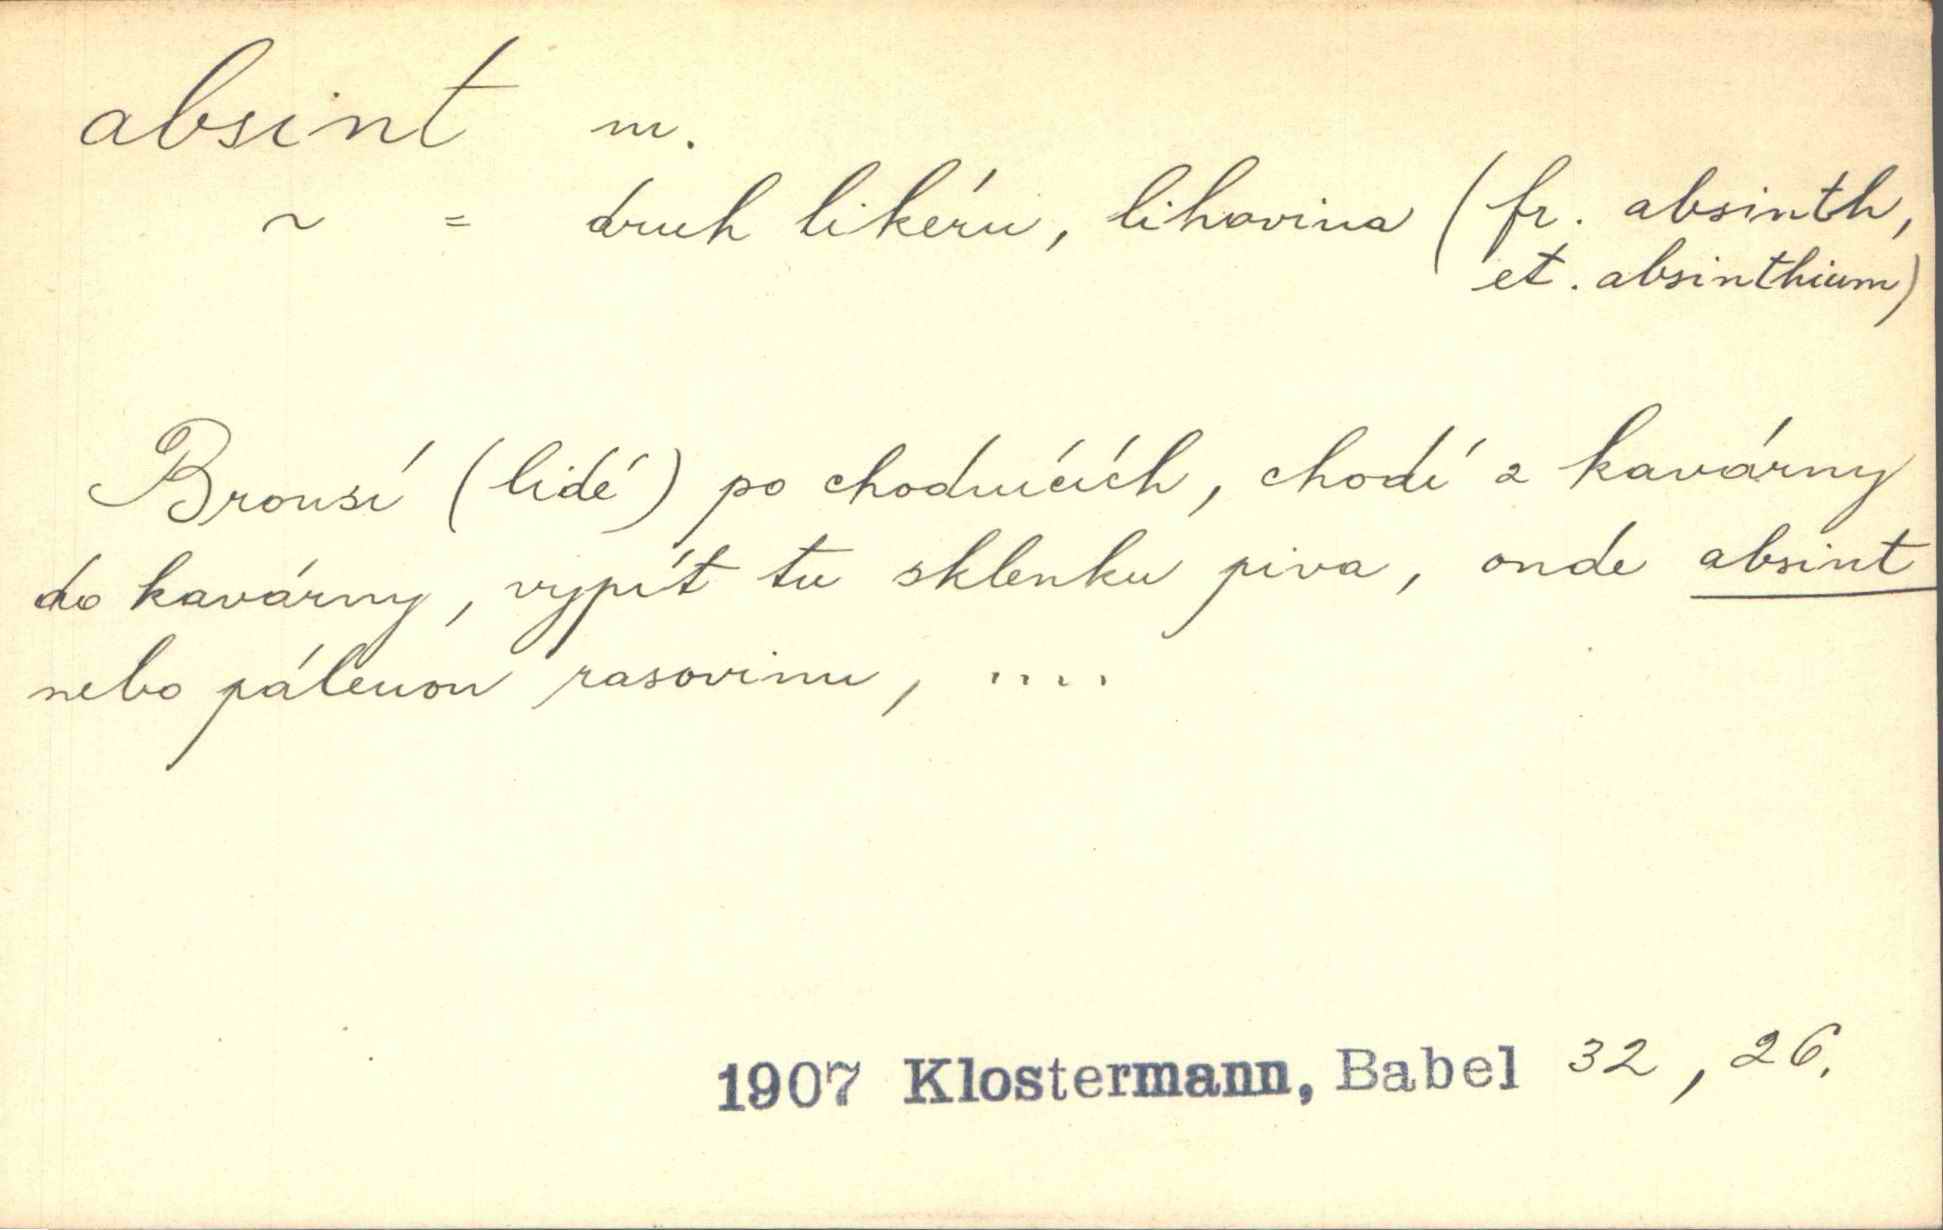 absint m.
~ = druh likéru, lihovina (fr. absinth,
et. absinthium)
Brousí (lidé) po chodnících, chodí z kavárny
do kavárny, vypít tu sklenku piva, onde absint
nebo pálenou rasovinu, ....
1907 Klostermann, Babel 32, 26.